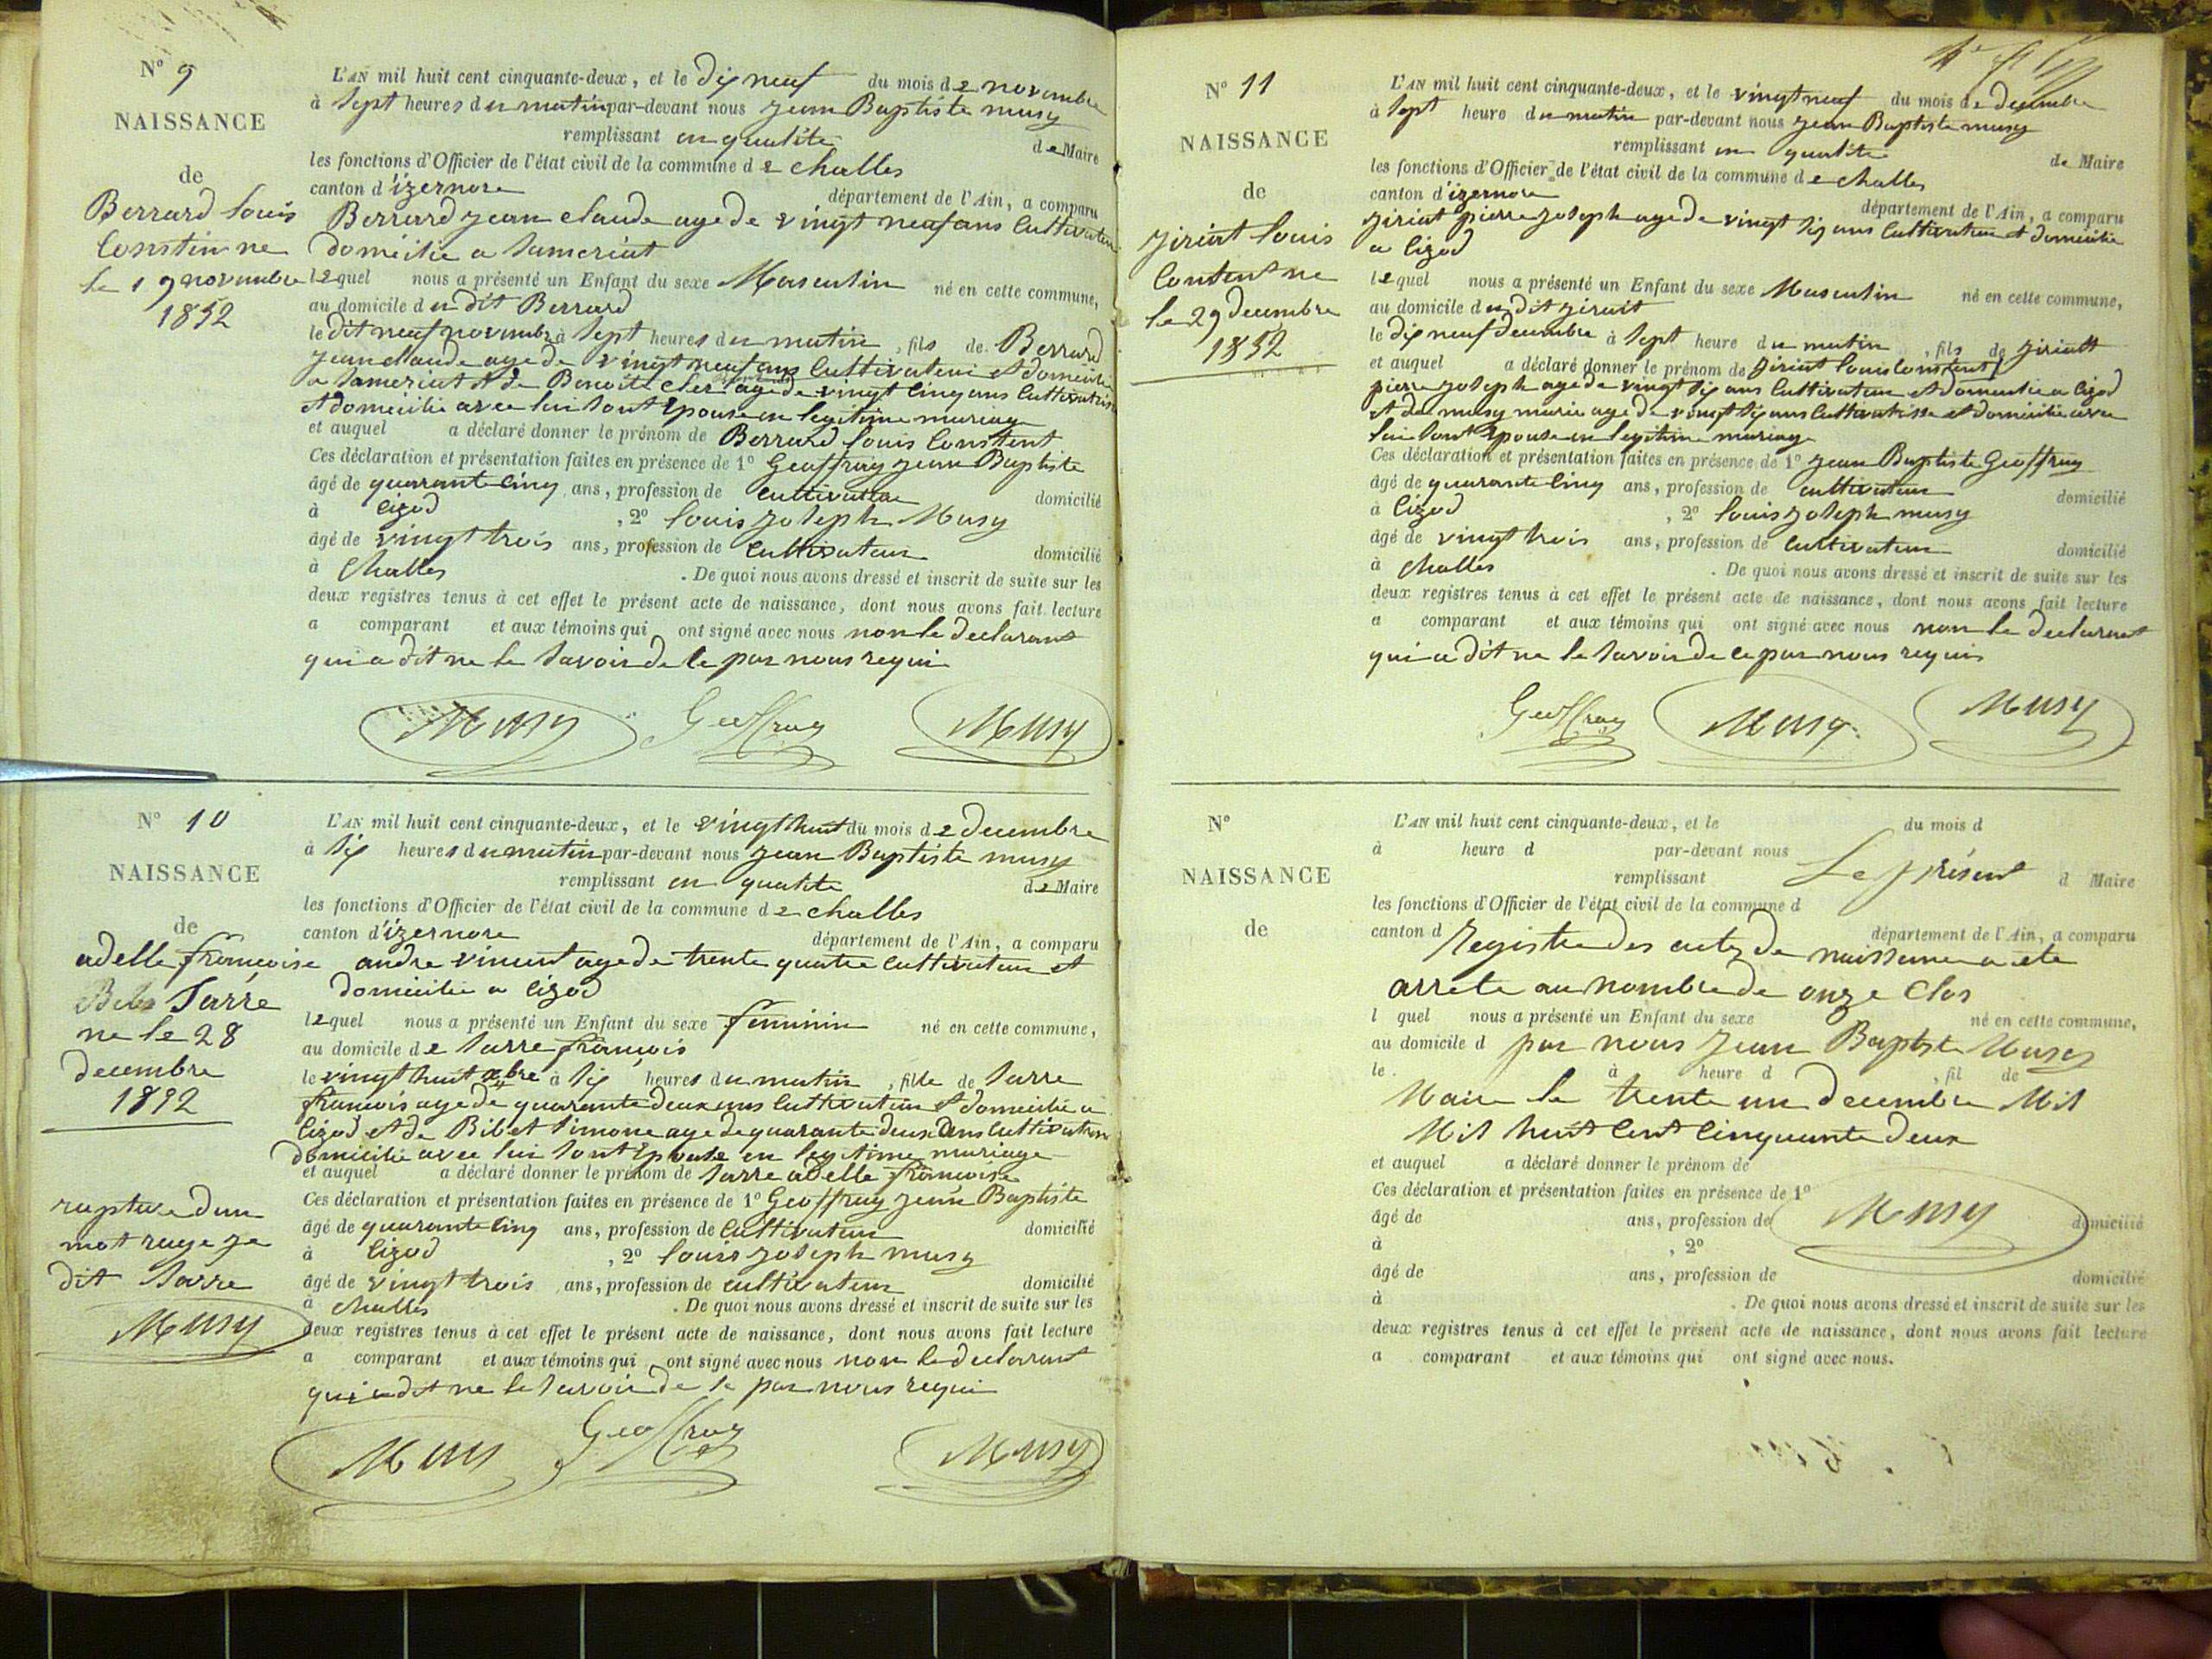 N° 9
NAISSANCE
de
Berrard louis
Constin ne
le 19 novembre
1852
L'AN mil huit cent cinquante-deux, et le dix neuf du mois de novembre
à sept heures du matin par-devant nous jean Baptiste musy
remplissant en qualite de Maire
les fonctions d'Officier de l'état civil de la commune de challes
canton d'izernore département de l'Ain, a comparu
Berrard jean claude age de vingt neuf ans Cultivateur
domicilie a Sameriat
lequel nous a présenté un Enfant du sexe Masculin né en cette commune,
au domicile du dit Berrard
le dit neuf novembre à sept heures du matin, fils de Berrard
jean claude age de vingt neuf ans Cultivateur et domicilie
a Sameriat et de Benoite cler age de vingt cinq ans Cultivatrice
et domicilie avec lui sont epouse en legitime mariage
et auquel a déclaré donner le prénom de Berrard louis Constent
Ces déclaration et présentation faites en présence de 1° Geoffray jean Baptiste
âgé de quarante cinq ans, profession de cultivateur domicilié
à Cizod, 2° louis joseph Musy
âgé de vingt trois ans, profession de Cultivateur domicilié
à Challes. De quoi nous avons dressé et inscrit de suite sur les
deux registres tenus à cet effet le présent acte de naissance, dont nous avons fait lecture
a comparant et aux témoins qui ont signé avec nous non le declarant
qui a dit ne le savoir de ce par nous requi
Musy Geoffray Musy
N° 10
NAISSANCE
de
adelle françoise
Sarre
ne le 28
decembre
1892
rapture dun
mot raye je
dit Sarre
Musy
L'AN mil huit cent cinquante-deux, et le vingt huit du mois de decembre
à six heures du matin par-devant nous jean Baptiste musy
remplissant en qualite de Maire
les fonctions d'Officier de l'état civil de la commune de challes
canton d'izernore département de l'Ain, a comparu
andre vincent age de trente quatre cultivateur et
domicilie a cizod
lequel nous a présenté un Enfant du sexe feminin né en cette commune,
au domicile de Sarre françois
le vingt huit xbre à six heures du matin, fille de Sarre
francois age de quarante deux ans Cultivateur et domicilie a
Cizod et de Bibet Simone age de quarante deux ans Cultivatrice
domicilie avec lui sont epouse en legitime mariage
et auquel a déclaré donner le prénom de Sarre adelle françoise
Ces déclaration et présentation faites en présence de 1° Geoffray jean Baptiste
âgé de quarante cinq ans, profession de Cultivateur domicilié
à Cizod, 2° louis joseph musy
âgé de vingt trois ans, profession de cultivateur domicilié
à challes. De quoi nous avons dressé et inscrit de suite sur les
deux registres tenus à cet effet le présent acte de naissance, dont nous avons fait lecture
a comparant et aux témoins qui ont signé avec nous non le declarant
qui a dit ne le savoir de ce par nous requi
Musy Geoffray Musy
N° 11
NAISSANCE
de
jiriat louis
Contentne
le 29 decembre
1852
L'AN mil huit cent cinquante-deux, et le vingt neuf du mois de decembre
à sept heure du matin par-devant nous jean Baptiste musy
remplissant en qualite de Maire
les fonctions d'Officier de l'état civil de la commune de challes
canton d'izernore département de l'Ain, a comparu
jiriat pierre joseph age de vingt six ans Cultivateur et domicilie
a Cizod
lequel nous a présenté un Enfant du sexe Masculin né en cette commune,
au domicile du dit jiriait
le dix neuf decembre à sept heure du matin, fils de jiriatt
et auquel a déclaré donner le prénom de jiriat louis Constent
pierre joseph age de vingt six ans Cultivateur et domicilie a Cizod
et de musy marie age de vingt six ans Cultivatrisse et domicilie avec
lui sont epouse en legitime mariage
Ces déclaration et présentation faites en présence de 1° jean Baptiste Geoffray
âgé de quarante cinq ans, profession de cultivateur domicilié
à Cizod, 2° louis joseph musy
âgé de vingt trois ans, profession de cultivateur domicilié
à Challes. De quoi nous avons dressé et inscrit de suite sur les
deux registres tenus à cet effet le présent acte de naissance, dont nous avons fait lecture
a comparant et aux témoins qui ont signé avec nous non le declarant
qui a dit ne le savoir de ce par nous requis
Geoffray Musy Musy
N°
NAISSANCE
de
L'AN mil huit cent cinquante-deux, et le du mois d
à heure d par-devant nous
remplissant Le présent d Maire
les fonctions d'Officier de l'état civil de la commune d
canton d département de l'Ain, a comparu
Registre des actes de naissance a ete
arrete au nombre de onze Clos
l quel nous a présenté un Enfant du sexe né en cette commune,
au domicile d par nous Jean Baptiste Musy
le à heure d, fil de
Maire le trente un decembre Mil
Mil huit Cent Cinquante deux
et auquel a déclaré donner le prénom de
Ces déclaration et présentation faites en présence de 1°
Musy
âgé de ans, profession de domicilié
à, 2°
âgé de ans, profession de domicilié
à. De quoi nous avons dressé et inscrit de suite sur les
deux registres tenus à cet effet le présent acte de naissance, dont nous avons fait lecture
a comparant et aux témoins qui ont signé avec nous.